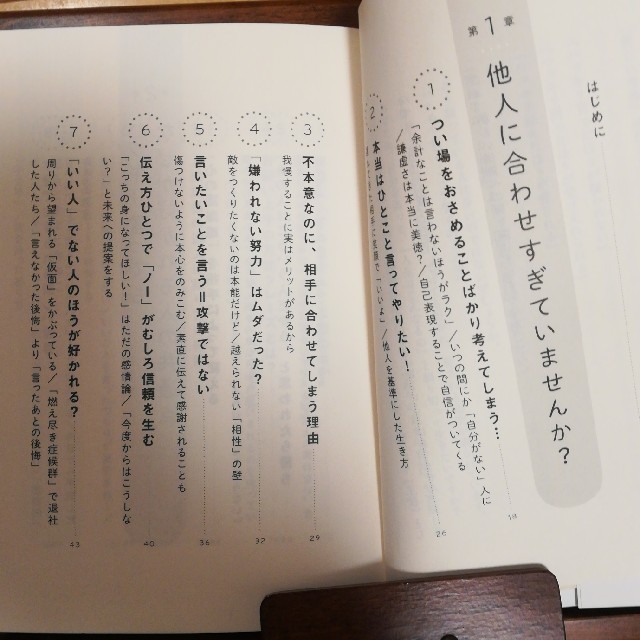 はじめに
第1章
他人に合わせすぎていませんか？
1
つい場をおさめることばかり考えてしまう…
18
「余計なことは言わないほうがラク」／いつの間にか「自分がない」人に
／謙虚さは本当に美徳？／自己表現することで自信がついてくる
2
本当はひとこと言ってやりたい！
26
笑顔で「いいよ」／他人を基準にした生き方
3
不本意なのに、相手に合わせてしまう理由
29
我慢することに実はメリットがあるから
4
「嫌われない努力」はムダだった？
32
敵をつくりたくないのは本能だけど／越えられない「相性」の壁
5
言いたいことを言う＝攻撃ではない
36
傷つけないように本心をのみこむ／素直に伝えて感謝されることも
6
伝え方ひとつで「ノー」がむしろ信頼を生む
40
「こっちの身になってほしい！」はただの感情論／「今度からはこうしな
い？」と未来への提案をする
7
「いい人」でない人のほうが好かれる？
43
周りから望まれる「仮面」をかぶっている／「燃え尽き症候群」で退社
した人たち／「言えなかった後悔」より「言ったあとの後悔」